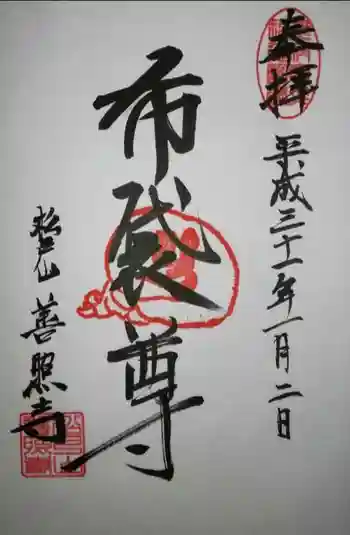 奉拝
平成三十一年一月二日
布袋尊
松戸山 善照寺